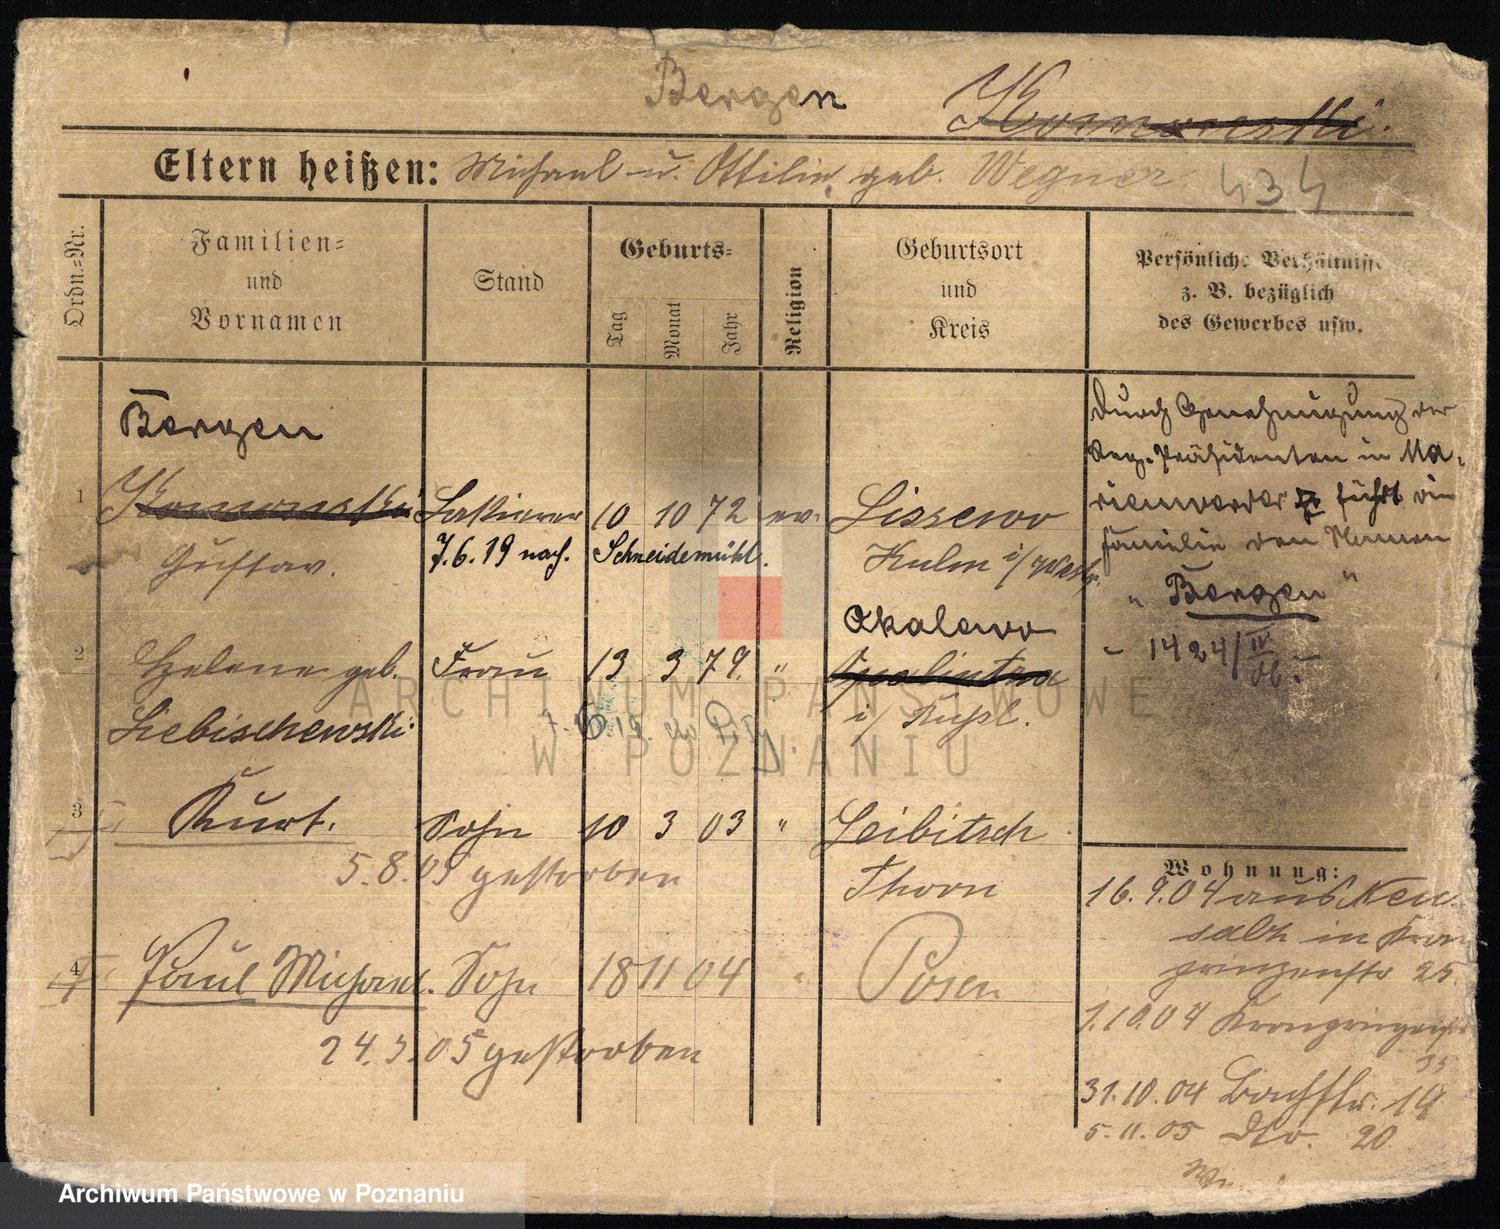 Bergen
Komowski.
Eltern heißen: Michael u. Ottilie, geb. Wegner
434
Ordn.=Nr.
Familien=
und
Vornamen
Stand
Geburts=
Tag
Monat
Jahr
Religion
Geburtsort
und
Kreis
Persönliche Verhältnisse
z. B. bezüglich
des Gewerbes usw.
Bergen
1 Komowski Lakierer 10 10 72 ev. Lissewo
Gustav. 7.6.19 nach. Schneidemühl. Kulm i/Westpr.
Okalewo
2 Helene geb. Frau 13 3 79. "
Liebischewski i/ Rußl.
3 Kurt. Sohn 10 3 03 " Leibitsch
5.8.05 gestorben Thorn
4 Paul Michael. Sohn 18 11 04 " Posen
24.3.05 gestorben
Durch Genehmigung des
Reg.-Präsidenten in Ma-
rienwerder führt die
Familie den Namen
"Bergen"
- 1424/
Wohnung:
16.9.04 aus Neu-
salz in Kron-
prinzenstr 25.
1.10.04 Kronprinzenstr
35
31.10.04 Bachstr. 19
5.11.05 Dto. 20
ARCHIWUM PAŃSTWOWE
W POZNANIU
Archiwum Państwowe w Poznaniu